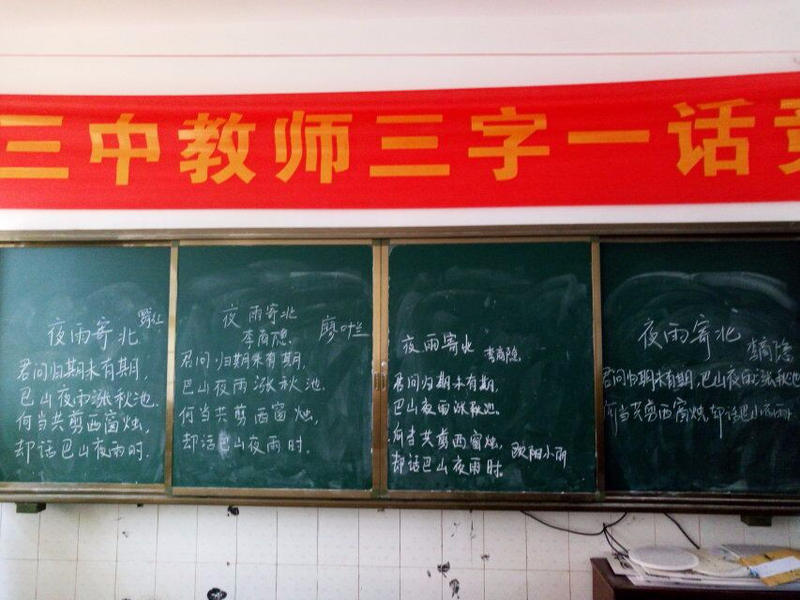 三中教师三字一话竞
夜雨寄北
君问归期未有期,
巴山夜雨涨秋池.
何当共剪西窗烛,
却话巴山夜雨时.
夜雨寄北
李商隐
廖叶兰
君问归期未有期,
巴山夜雨涨秋池.
何当共剪西窗烛,
却话巴山夜雨时.
夜雨寄北 李商隐
君问归期未有期,
巴山夜雨涨秋池.
何当共剪西窗烛,
却话巴山夜雨时.
欧阳小丽
夜雨寄北
李商隐
君问归期未有期,巴山夜雨涨秋池
何当共剪西窗烛,却话巴山夜雨